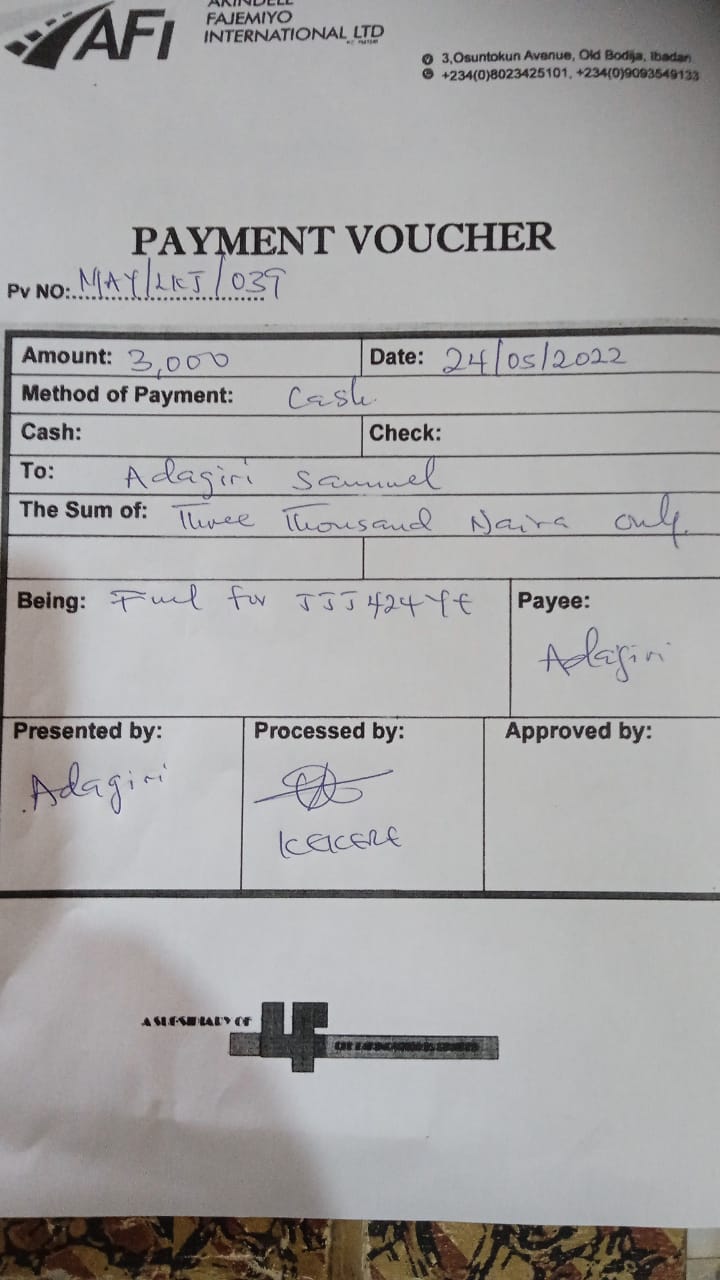 AFI
AKINDELE
FAJEMIYO
INTERNATIONAL LTD
3,Osuntokun Avenue, Old Bodija, Ibadan
+234(0)8023425101, +234(0)9093549133
PAYMENT VOUCHER
Pv NO: MAY/LKJ/039
Amount: 3,000 Date: 24/05/2022
Method of Payment: Cash
Cash: Check:
To: Adagiri Samuel
The Sum of: Three Thousand Naira only.
Being: Fuel for JJJ424YE Payee:
Adagiri
Presented by: Processed by: Approved by:
Adagiri
KEKERE
A SUBSIDIARY OF